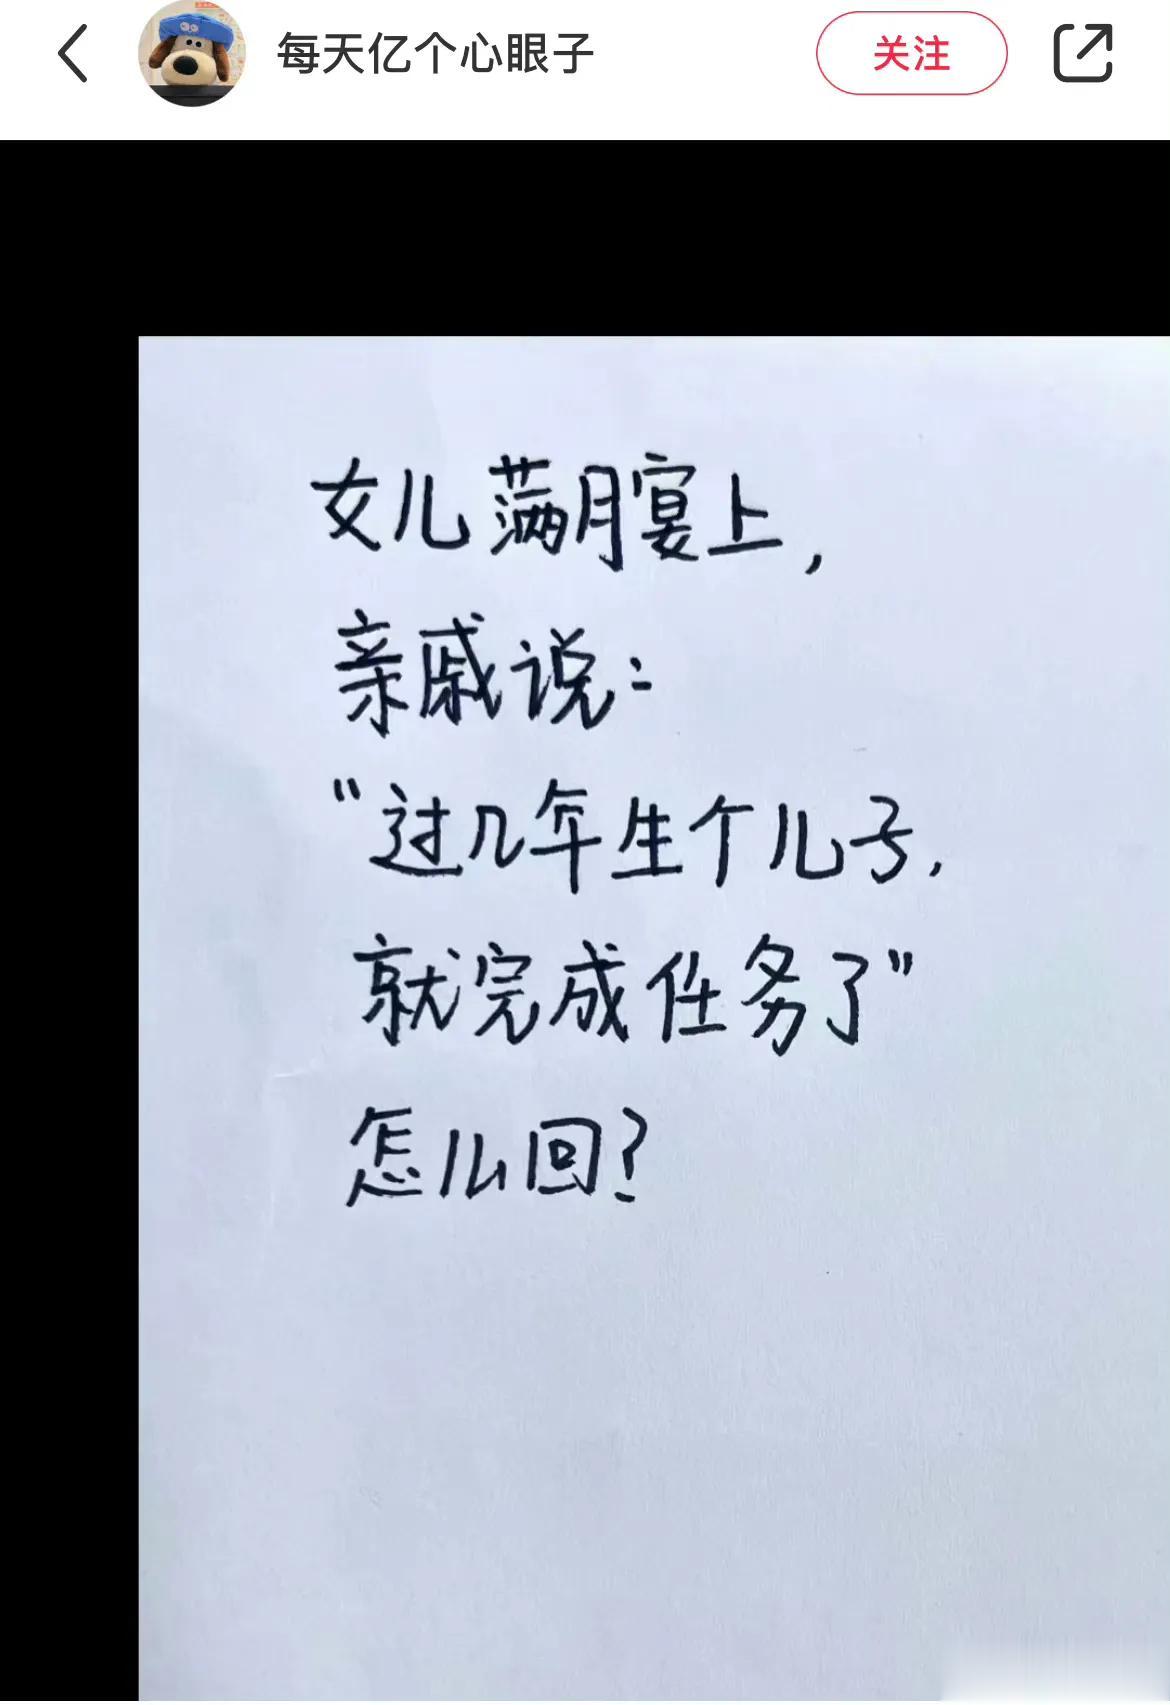 每天亿个心眼子
关注
女儿满月宴上，
亲戚说：
“过几年生个儿子，
就完成任务了”
怎么回？